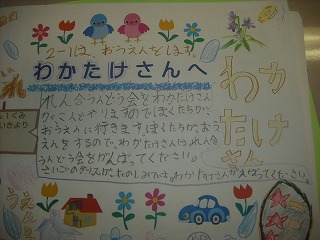 2-1は、おうえんをします。
わかたけさんへ
れん合うんどう会をわかたけさん
やりますのでぼくたちが、
おうえんに行きます。ぼくたちが、おう
えんをするので、わかたけさんは、れん合
うんどう会をがんばってください。
さいごのダンスが、たのしみです。わかたけさんがんばってください。
わか
たけ
さん
いくみ
より